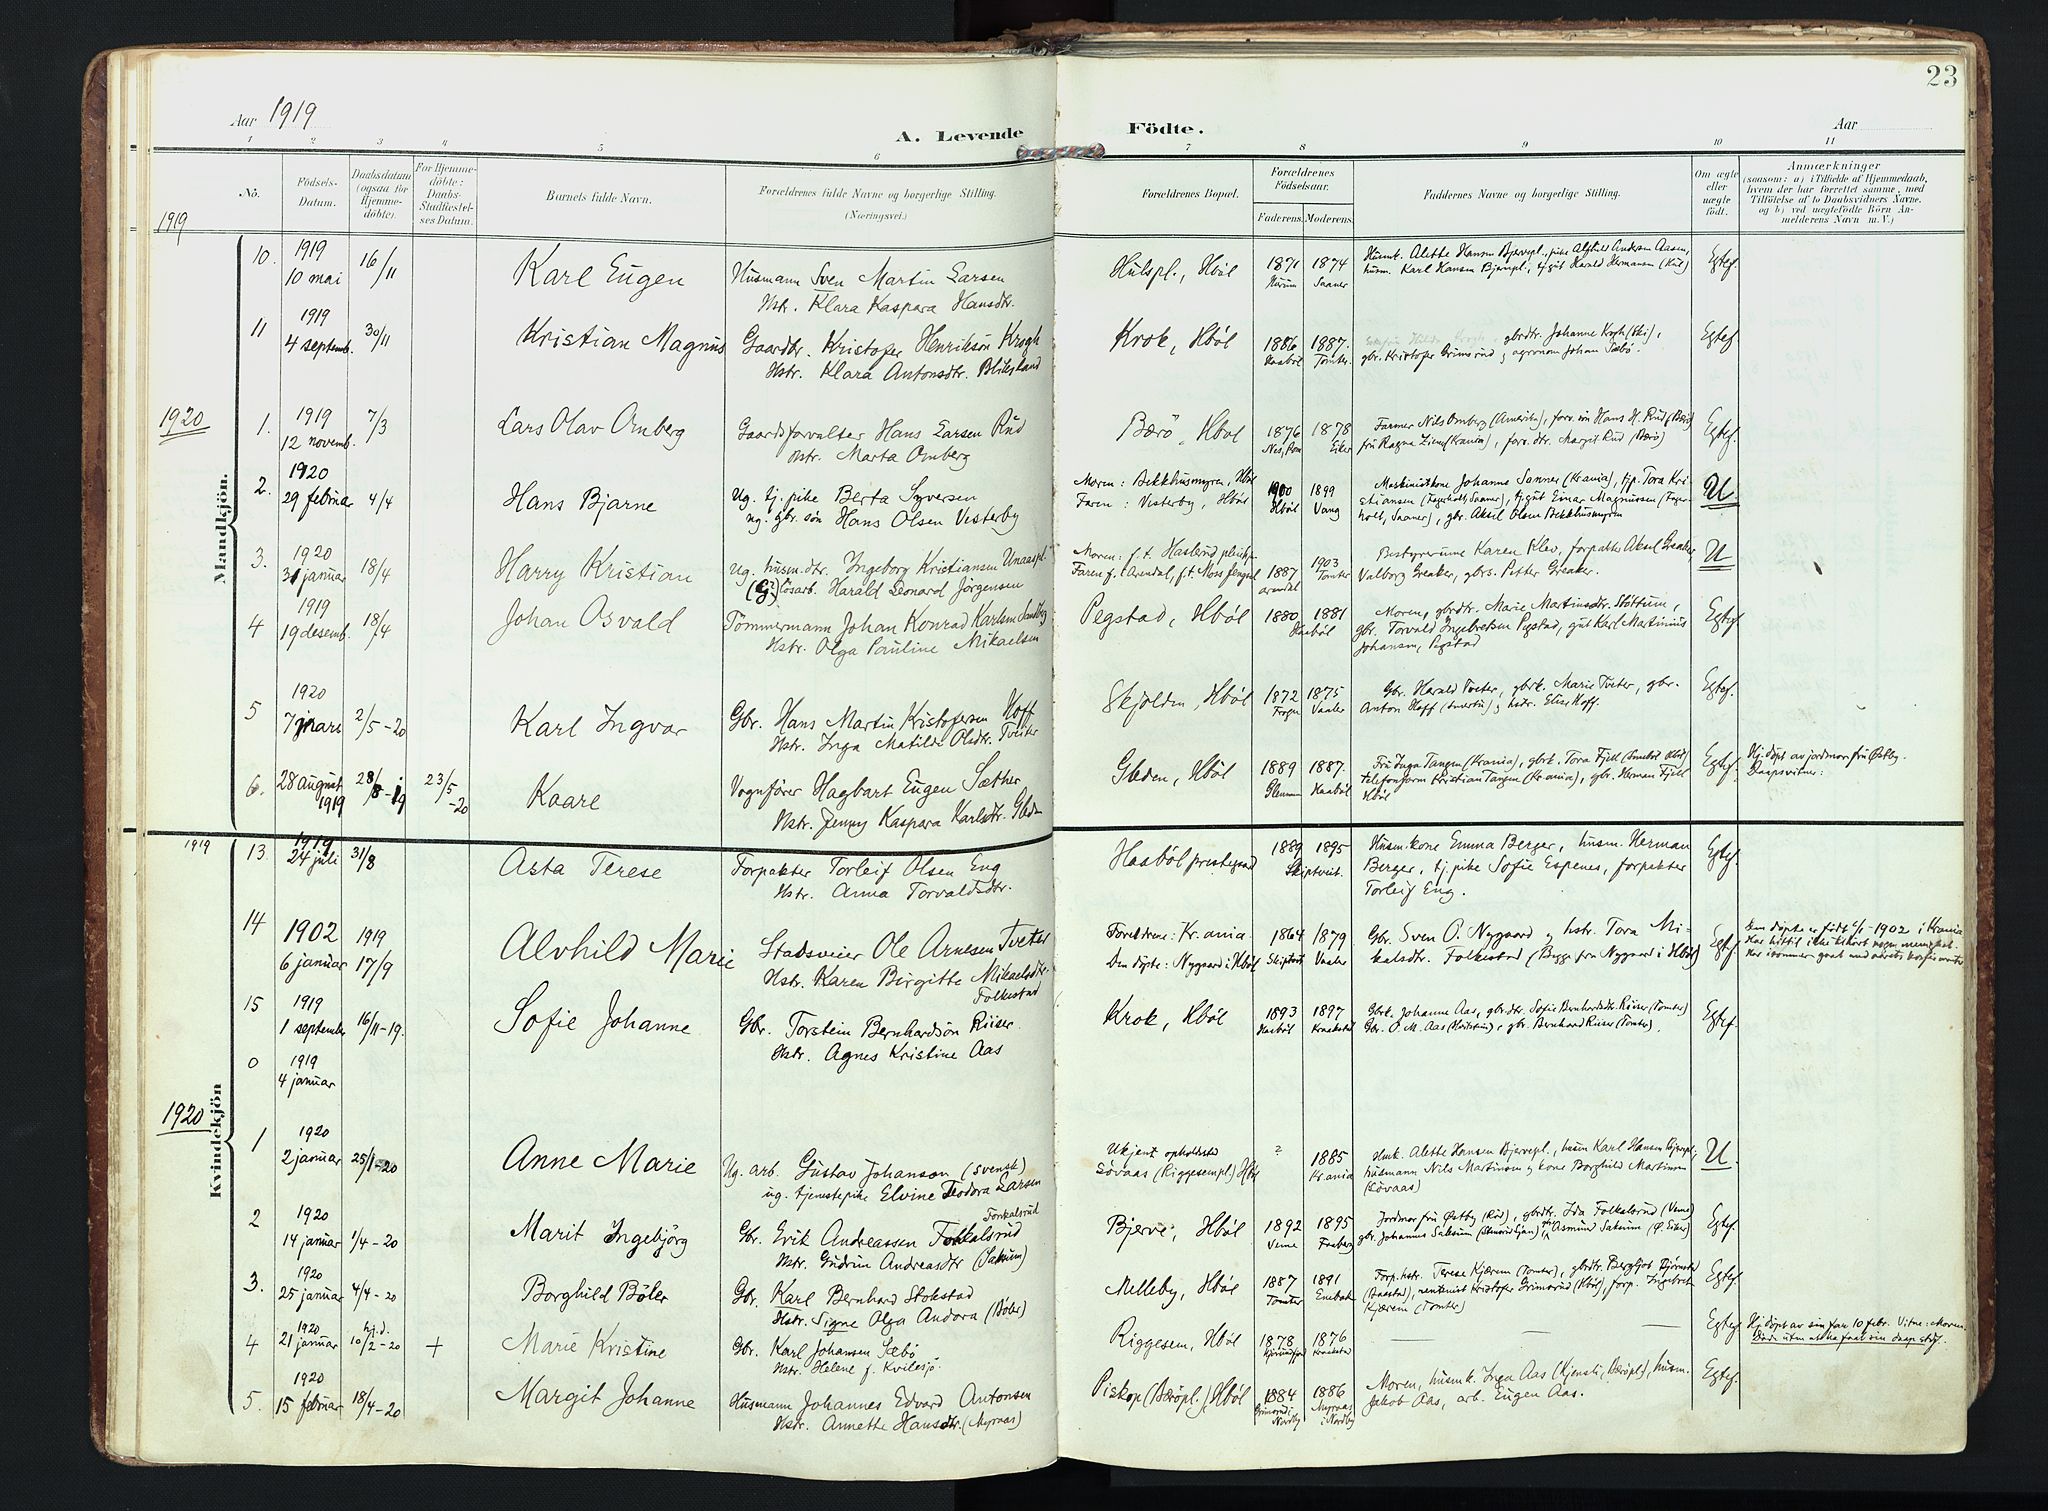 23
Aar 1919
A. Levende Födte.
Aar
1 2 3 4 5 6 7 8 9 10 11
No.
Födsels-Datum.
Daabsdatum (ogsaa for Hjemmedöbte).
For Hjemmedöbte: Daabs-Stadfæstelses Datum.
Barnets fulde Navn.
Forældrenes fulde Navne og borgerlige Stilling. (Næringsvei.)
Forældrenes Bopæl.
Forældrenes Födselsaar.
Faderens. Moderens.
Faddernes Navne og borgerlige Stilling.
Om ægte eller uægte födt.
Anmærkninger
(saasom: a) i Tilfælde af Hjemmedaab,
hvem der har forrettet samme, med
Tilföielse af to Daabsvidners Navne.
og b) ved uægtefödte Börn An-
melderens Navn m. V.)
1919
Mandkjön.
10. 1919 10 mai 16/11 Karl Eugen Husmann Sven Martin Larsen
Hstr. Klara Kaspara Hansdtr.
Hulspl., Hböl 1871 1874 Saaner
Husmk. Alette Hansen Bjervepl., pike Alfhild Andersen Aasen,
husm. Karl Hansen Bjervepl., tj.gut Harald Hermansen (Hul) Egtef.
11 1919 4 septemb. 30/11 Kristian Magnus Gaardbr. Kristofer Henriksön Krogh
Hstr. Klara Antonsdtr. Bliksland
Krok, Hböl 1886 Haaböl 1887. Tomter.
gbrdtr. Johanne Krogh (Ski),
gbr. Kristofer Grimsrud, agronom Johan Sæbö. Egtef.
1920
1. 1919 12 novemb. 7/3 Lars Olav Ornberg Gaardsforvalter Hans Larsen Rud
Hstr. Marta Ornberg
Bærö, Hböl 1876 1878 Eiker
Farmer Nils Ornberg (Amerika), forv. sön Hans H. Rud (Bærö)
fru Ragna Ziem (Krania), forv. dtr. Margit Rud (Bærö) Egtef.
2. 1920 29 februar 4/4 Hans Bjarne Ug. tj. pike Berta Syversen
ug. gbr. sön Hans Olsen Vesterby
Moren: Bekkhusmyren, Hböl
Faren: Vesterby, Hböl 1900 Hböl 1899 Vang
Maskinistkone Johanne Sanner (Krania), tjp. Tora Kri-
stiansen (Fagerholt, Saaner), tj.gut Einar Magnussen (Fager-
holt, Saaner), gbr. Aksel Olsen Bekkhusmyren U.
3. 1920 31 januar 18/4 Harry Kristian Ug. husm. dtr. Ingeborg Kristiansen Unaaspl.
(G.) lösarb. Harald Leonard Jörgensen
Moren: f. t. Haslerud
Faren f. Arendal, f.t. Moss fengsel 1887 arendal 1903 Tomter
Bestyrerinne Karen Klev, forpakter Aksel Greaker,
Valborg Greaker, gbrs. Petter Greaker. U
4 1919 19 desemb. 18/4 Johan Osvald Tömmermann Johan Konrad Karlsen
Hstr. Olga Pauline Mikaelsen
Pegstad, Hböl 1880 1881 Haaböl
Moren, gbrdtr. Marie Martinsdtr. Slöttum,
gbr. Torvald Ingebretsen Pegstad, gut Karl Martinius
Johansen, Pegstad Egtef.
5 1920 7 mars 2/5-20 Karl Ingvar Gbr. Hans Martin Kristofersen Hoff
Hstr. Inga Matilde Olsdtr. Tveter
Skjolden, Hböl 1872 Frogn 1875 Vaaler
Gbr. Harald Tveter, gbrk. Marie Tveter, gbr.
Anton Hoff, hsdr. Elise Hoff. Egtef.
6. 28 august 1919 28/8-19 23/5-20 Kaare Vognfører Hagbart Eugen Sæther
Hstr. Jenny Kaspara Karlsdtr. Gleden
Gleden, Hböl 1889 Glemmen 1887. Haaböl
Fru Inga Tangen (Krania), gbrk. Tora Fjell
telefonform. Kristian Tangen (Krania), gbr. Herman Fjell
Hböl Egtef. Hj.döpt av jordmor fru Østby.
Daapsvitner:
1919
Kvindekjön
13. 1919 24 juli 31/8 Asta Terese Forpakter Torleif Olsen Eng
Hstr. Anna Torvaldsdtr.
Haaböl prestegaard 1889 1895 Skiptveit.
Husm.kone Emma Berger, husm. Herman
Berger, tj.pike Sofie Espenes, forpakter
Torleif Eng. Egtef.
14 1902 6 januar 1919 17/9 Alvhild Marie Stadsveier Ole Arnesen Tveter
Hstr. Karen Birgitte Mikaelsdtr.
Folkestad
Foreldrene: Kr.ania.
Den döpte: Nygaard i Hböl 1864 Skiptvet 1879 Vaaler
Gbr. Sven O. Nygaard og hstr. Tora Mi-
kalsdtr. Folkestad (Begge fra Nygaard i Hböl) Egtef.
Den döpte er födt 6/1-1902 i Krania
15 1919 1 september 16/11-19. Sofie Johanne Gbr. Torstein Bernhardsön Riiser.
Hstr. Agnes Kristine Aas
Krok, Hböl 1893 Haaböl 1897 Kraakstad
Gbrk. Johanne Aas, gbrdtr. Sofie Bernhardsdtr Riiser (Tomter)
Gbr. O. M. Aas, gbr. Bernhard Riiser (Tomter). Egtef.
0 1919 4 januar
1920
1 1920 2 januar 25/1-20 Anne Marie Ug. arb. Gustav Johanson (svensk)
ug. tjenestepike Elvine Teodora Larsen
Ukjent opholdssted
Sövaas (Riggesempl.) Hböl ? 1885 Kr.ania
Husmk. Alette Hansen Bjervepl., husm Karl Hansen Bjervepl.,
husmann Nils Martinsen og kone Borghild Martinsen
(Sövaas) U.
2 1920 14 januar 1/4-20 Marit Ingebjörg Gbr. Erik Andreassen Forkalsrud
Forkalsrud
Hstr. Gudrun Andreasdtr (Saksum)
Bjerve, Hböl 1892 Veme 1895 Faaberg
Jordmor fru Østby (Röd), gbrdtr. Ida Folkalsrud (Veme)
gbr. Johannes Saksum, Asmund Saksum (Ø. Eiker) Egtef.
3. 1920 25 januar 4/4-20 Borghild Böler Gbr. Karl Bernhard Stokstad
Hstr. Signe Olga Andora (Böler)
Melleby, Hböl 1887 Tomter 1891 Enebak
Forp.hstr. Terese Kjærem (Tomter), gbrdtr Bergljot Bjørnstad
(Baastad), rentenist Kristofer Grimsrud (Hböl), forp. Ingebret
Kjærem (Tomter) Egtef.
4 1920 21 januar hj.d. 10/2-20 + Marie Kristine Gbr. Karl Johansen Sæbö
Hstr. Helene f. Kvilesjö.
Riggesem, Hböl 1878 1876 Kraakstad — — — Egtef.
Hj.döpt av sin far 10 febr. Vitne: Moren.
5. 1920 15 februar 18/4-20 Margit Johanne Husmann Johannes Edvard Antonsen
Hstr. Annette Hansdtr. (Myraas)
Piskop (Bæröpl.), Hböl 1884 Grimsrud i Nordby 1886 Myraas i Nordby
Moren, husmk. Inga Aas (Kjensli, (Bæröpl), husm.
Jakob Aas, arb. Eugen Aas. Egtef.